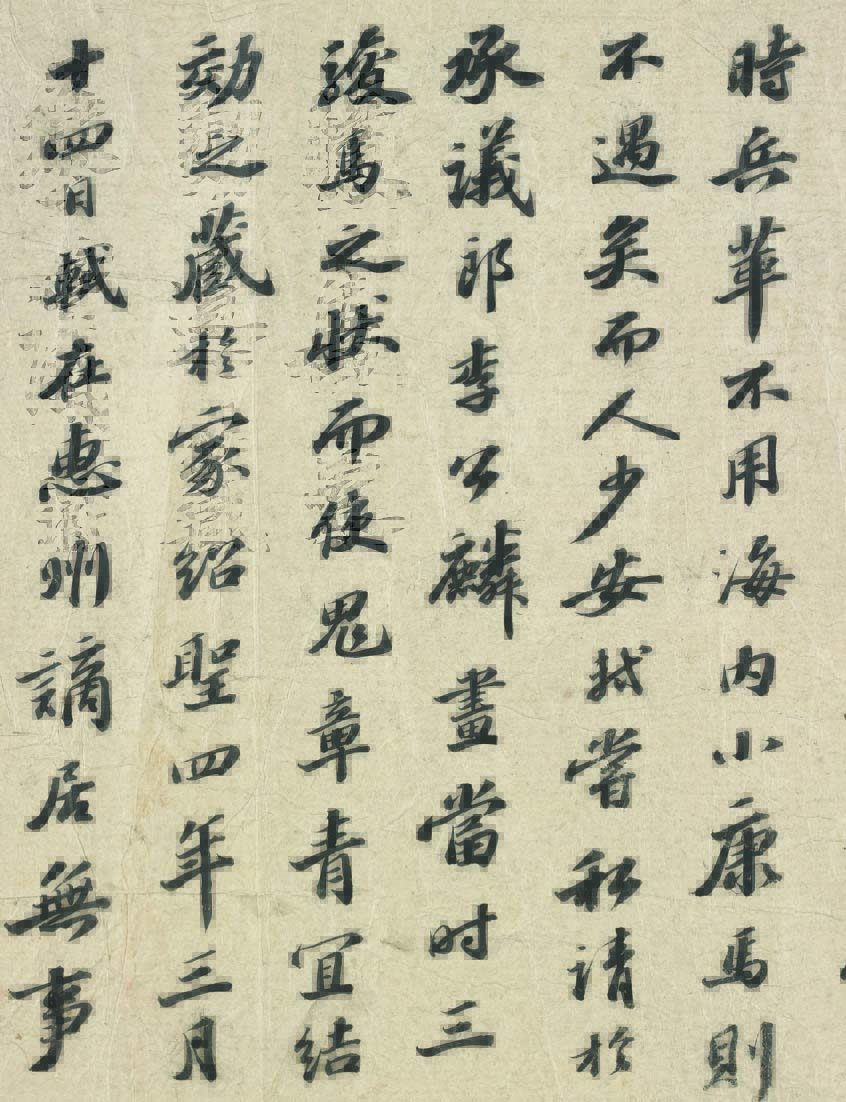 時兵革不用海内小康馬則
不遇矣而人少安軾嘗私請於
承議郎李公麟畫當时三
駿馬之狀而使鬼章青宜結
効之藏於家紹聖四年三月
十四日軾在惠州謫居無事